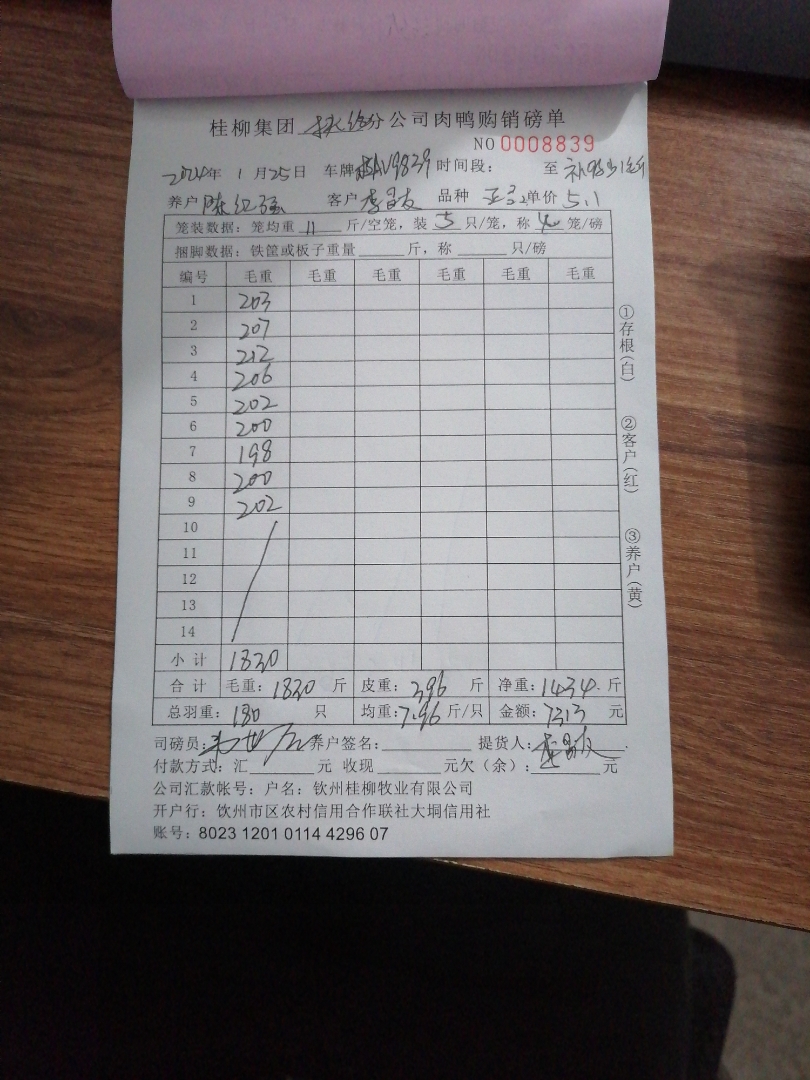 桂柳集团 分公司肉鸭购销磅单
NO 0008839
2024年 1 月 25 日 车牌 AV9839 时间段： 至
养户 陈红强 客户 李昌友 品种 单价 5.1
笼装数据：笼均重 11 斤/空笼，装 5 只/笼，称 4 笼/磅
捆脚数据：铁筐或板子重量 斤，称 只/磅
编号 毛重 毛重 毛重 毛重 毛重 毛重
1 203
2 207
3 212
4 206
5 202
6 200
7 198
8 200
9 202
10
11
12
13
14
小计 1830
合计 毛重：1830 斤 皮重：396 斤 净重：1434. 斤
总羽重：180 只 均重：7.96 斤/只 金额：7313 元
司磅员： 养户签名： 提货人：李昌友
付款方式：汇 元 收现 元欠（余）： 元
公司汇款帐号：户名：钦州桂柳牧业有限公司
开户行：钦州市区农村信用合作联社大垌信用社
账号：8023 1201 0114 4296 07
①存根（白）
②客户（红）
③养户（黄）